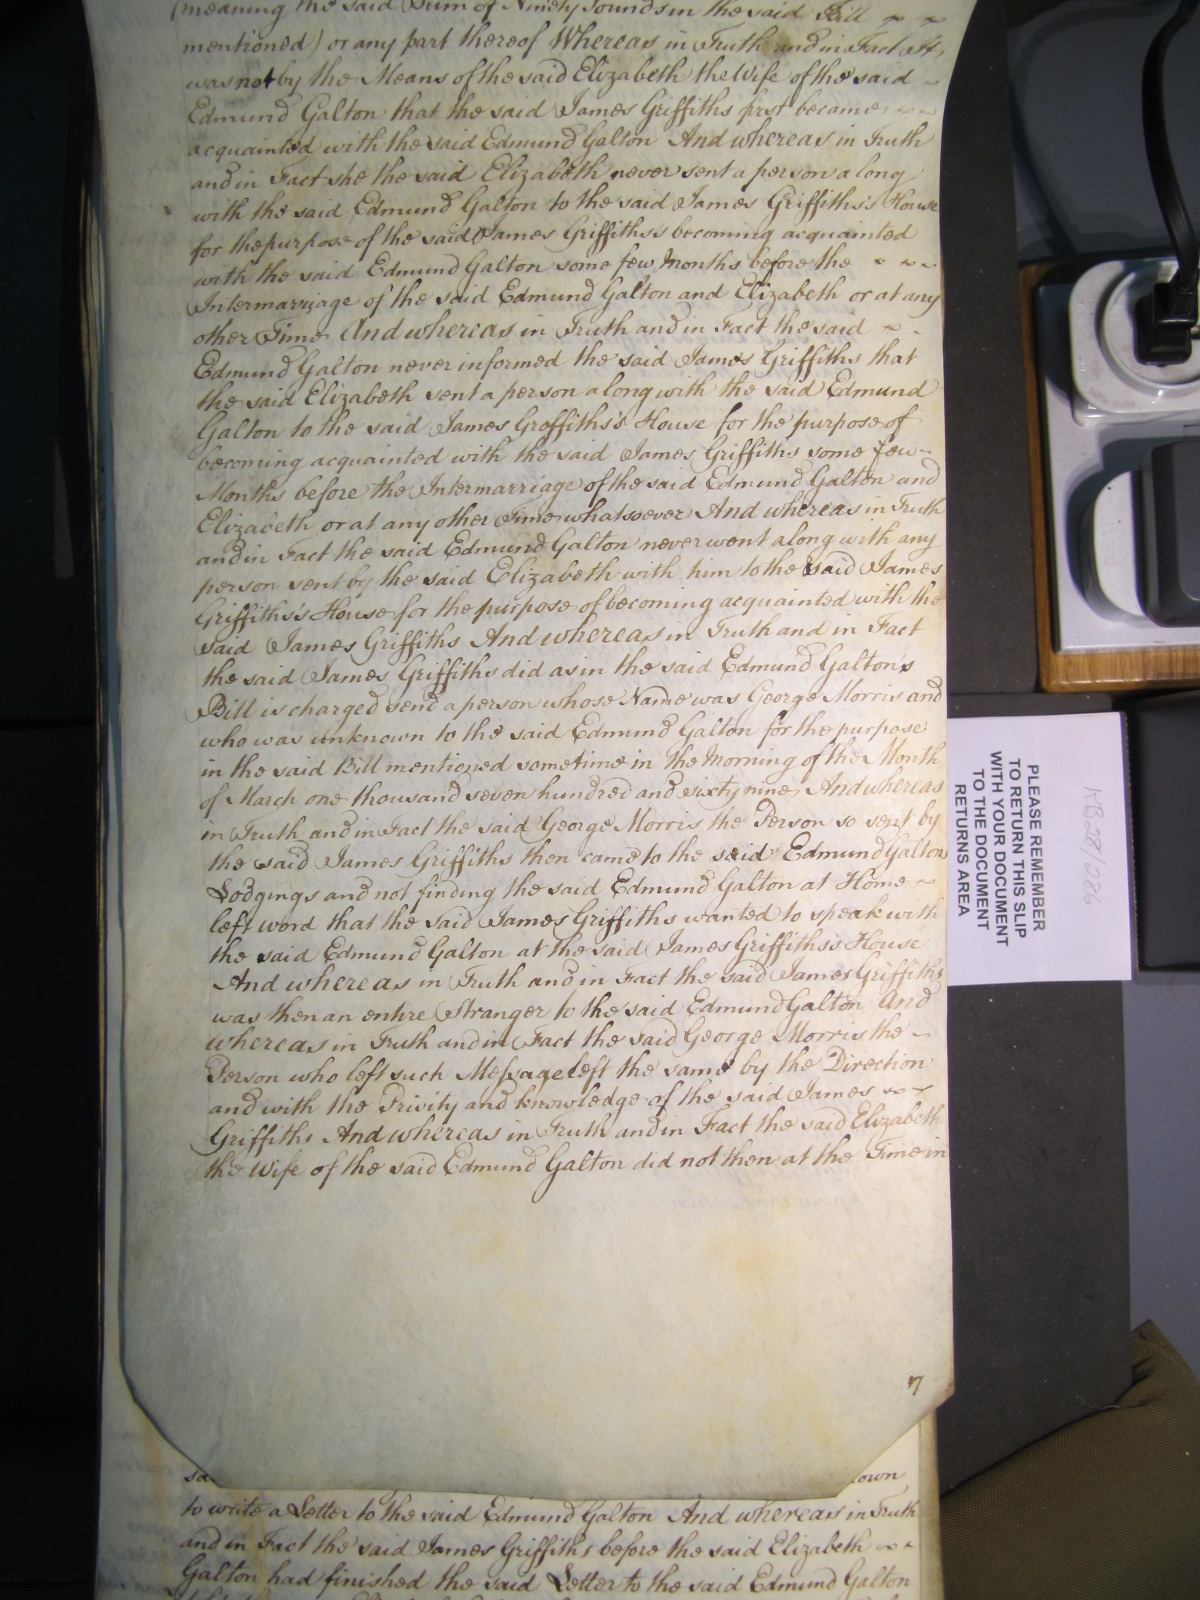 (meaning the said Sum of Ninety Pounds in the said Bill
mentioned) or any part thereof Whereas in Truth and in Fact It
was not by the Means of the said Elizabeth the Wife of the said
Edmund Galton that the said James Griffiths first became
acquainted with the said Edmund Galton And whereas in Truth
and in Fact she the said Elizabeth never sent a person along
with the said Edmund Galton to the said James Griffiths's House
for the purpose of the said James Griffiths's becoming acquainted
with the said Edmund Galton some few Months before the
Intermarriage of the said Edmund Galton and Elizabeth or at any
other Time And whereas in Truth and in Fact the said
Edmund Galton never informed the said James Griffiths that
the said Elizabeth sent a person along with the said Edmund
Galton to the said James Groffiths's House for the purpose of
becoming acquainted with the said James Griffiths some few
Months before the Intermarriage of the said Edmund Galton and
Elizabeth or at any other Time whatsoever And whereas in Truth
and in Fact the said Edmund Galton never went along with any
person sent by the said Elizabeth with him to the said James
Griffiths's House for the purpose of becoming acquainted with the
said James Griffiths And whereas in Truth and in Fact
the said James Griffiths did as in the said Edmund Galton's
Bill is charged send a person whose Name was George Morris and
who was unknown to the said Edmund Galton for the purpose
in the said Bill mentioned sometime in the Morning of the Month
of March one thousand seven hundred and sixty nine And whereas
in Truth and in Fact the said George Morris the Person so sent by
the said James Griffiths then came to the said Edmund Galtons
Lodgings and not finding the said Edmund Galton at Home
left word that the said James Griffiths wanted to speak with
the said Edmund Galton at the said James Griffiths's House
And whereas in Truth and in Fact the said James Griffiths
was then an entire Stranger to the said Edmund Galton And
whereas in Truth and in Fact the said George Morris the
Person who left such Message left the same by the Direction
and with the Privity and knowledge of the said James
Griffiths And whereas in Truth and in Fact the said Elizabeth
the Wife of the said Edmund Galton did not then at the Time in
7
to write a Letter to the said Edmund Galton And whereas in Truth
and in Fact the said James Griffiths before the said Elizabeth
Galton had finished the said Letter to the said Edmund Galton
PLEASE REMEMBER
TO RETURN THIS SLIP
WITH YOUR DOCUMENT
TO THE DOCUMENT
RETURNS AREA
KB 28/286